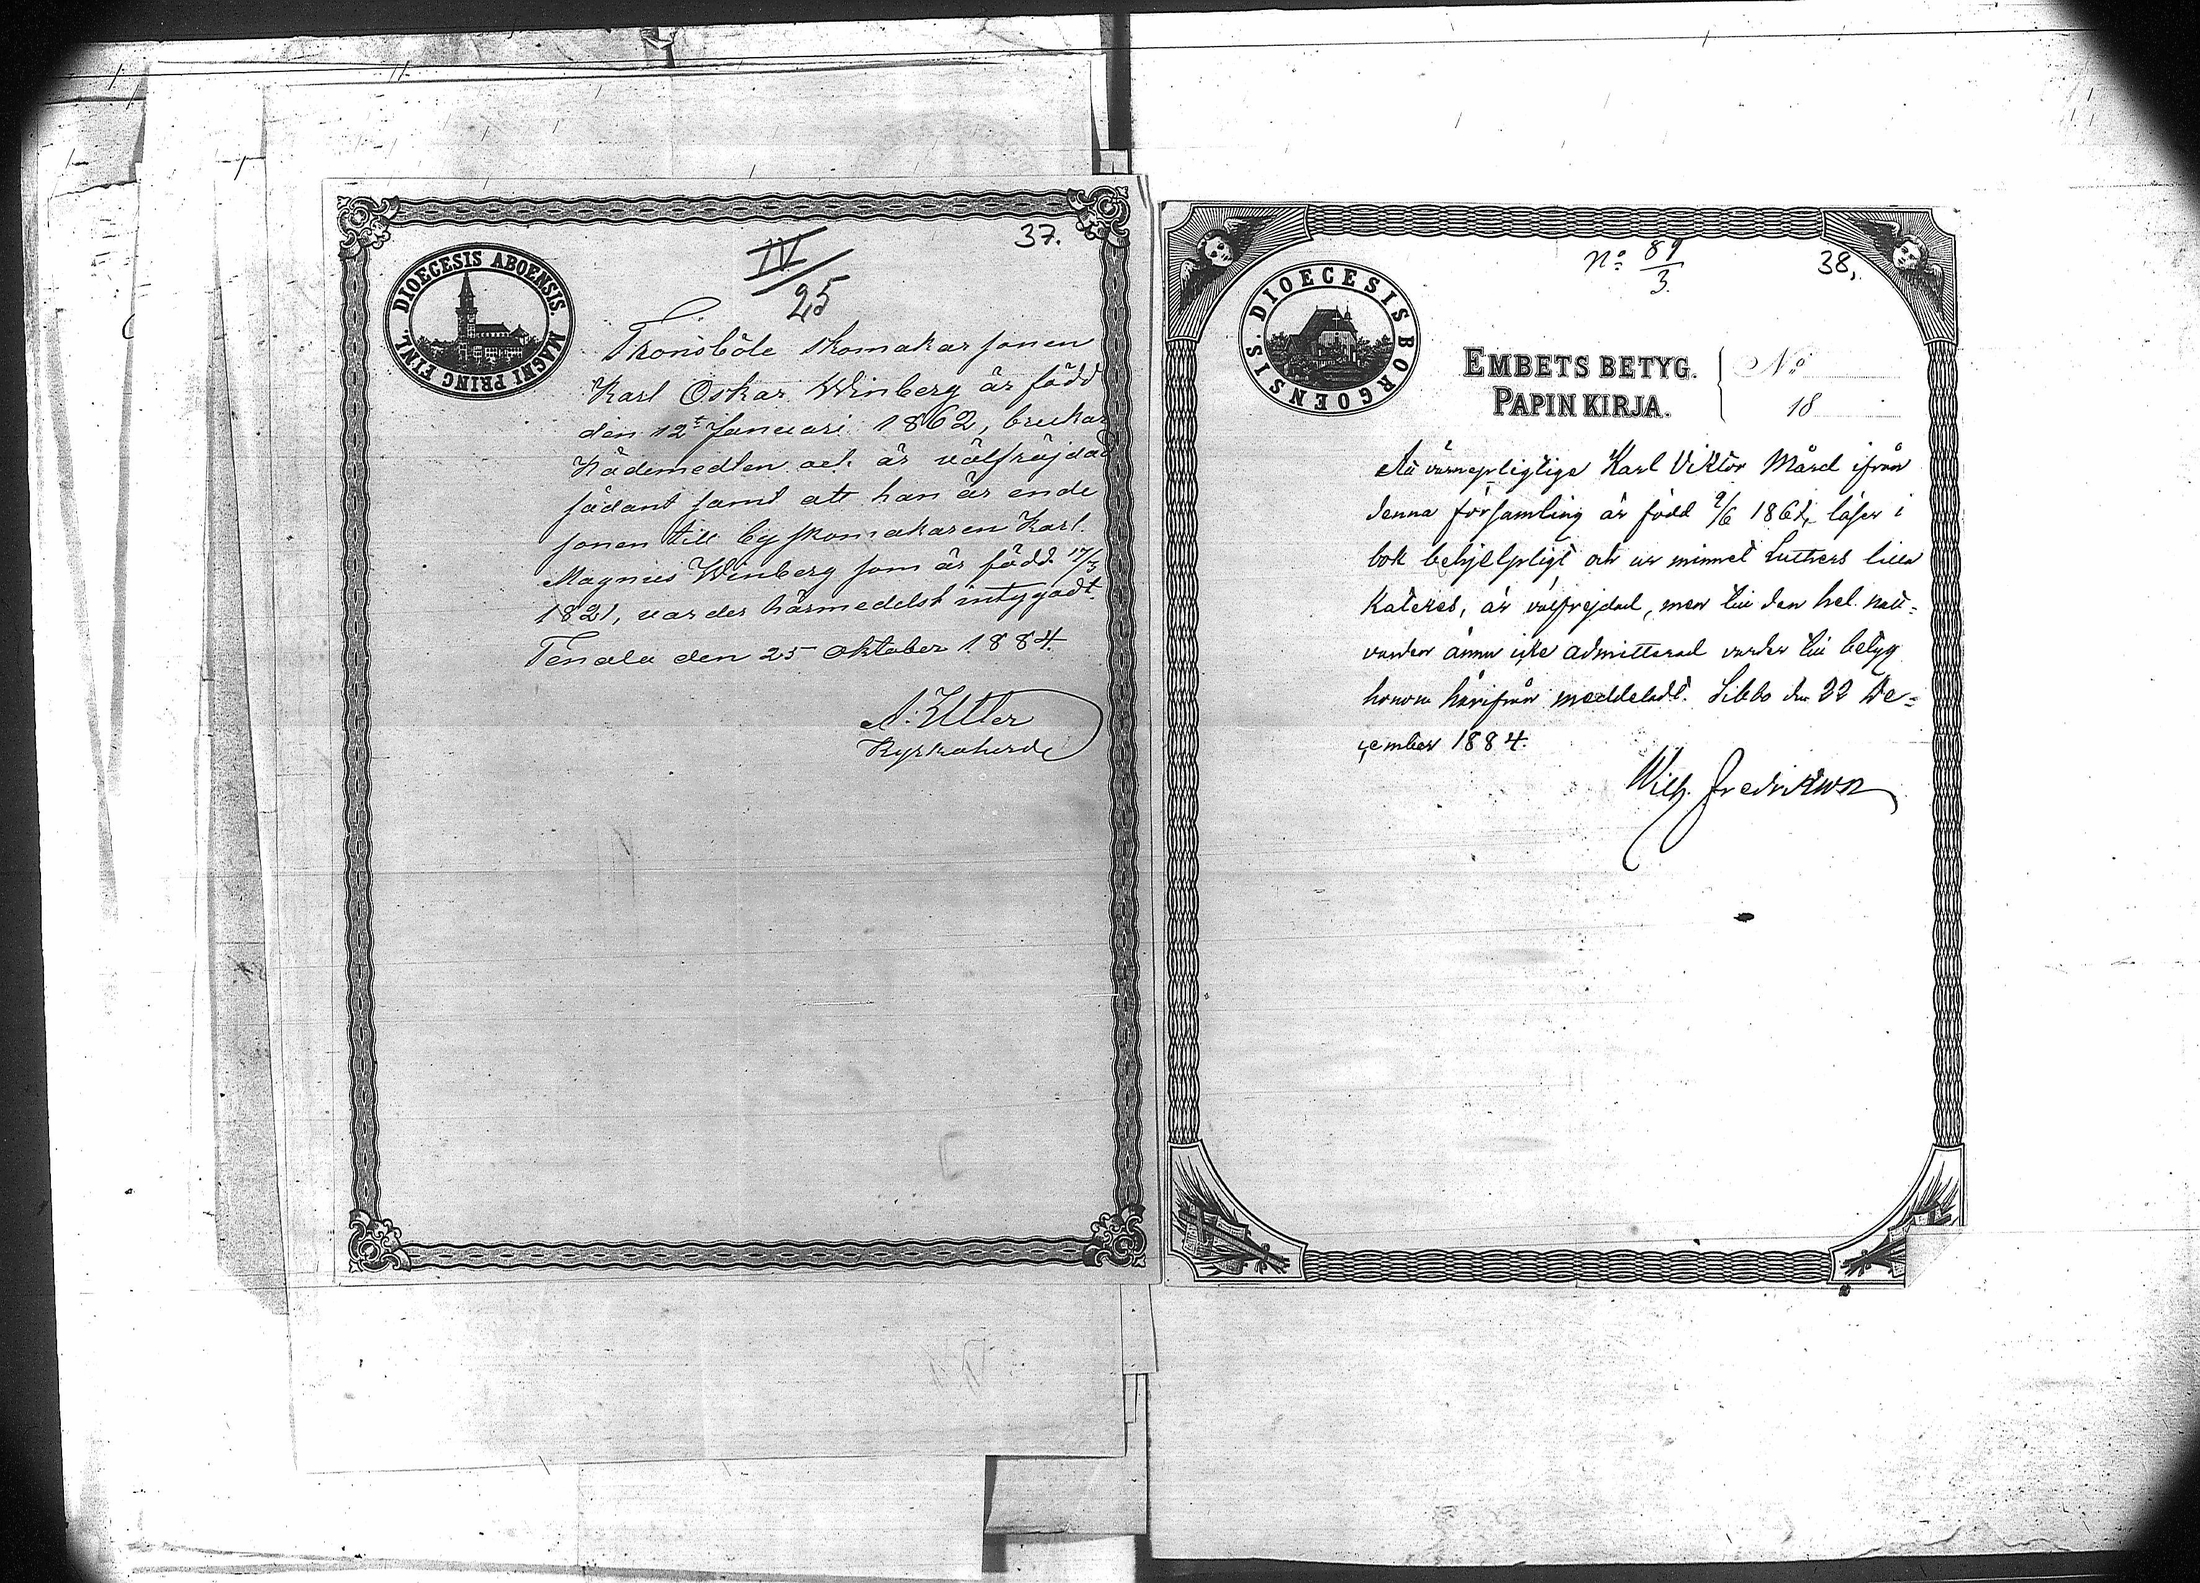 37.
IV/25
DIOECESIS ABOENSIS. MAGNI PRINC FINL.
Tronsböle skomakarsonen
Karl Oskar Winberg är född
den 12te Januari 1862, brukar
Nådemedlen och är välfräjdad
sådant samt att han är ende
sonen till byskomakaren Karl
Magnus Winberg som är född 17/3
1821, varder härmedelst intygadt.
Tenala den 25 Oktober 1884.
Kyrkoherde
38.
No 89/3.
DIOECESIS BORGOENSIS.
EMBETS BETYG.
PAPINKIRJA.
No
18
At värnepligtige Karl Viktor Mård ifrån
denna församling är född 9/6 läser i
bok behjelpligt och ur minnet Luthers lilla
Kateches, är välfrejdad, men till den hel. natt-
varden ännu icke admitterad varder till betyg
honom härifrån meddeladt. Sibbo den 22 De-
cember 1884.
Wilh. Fredrikson